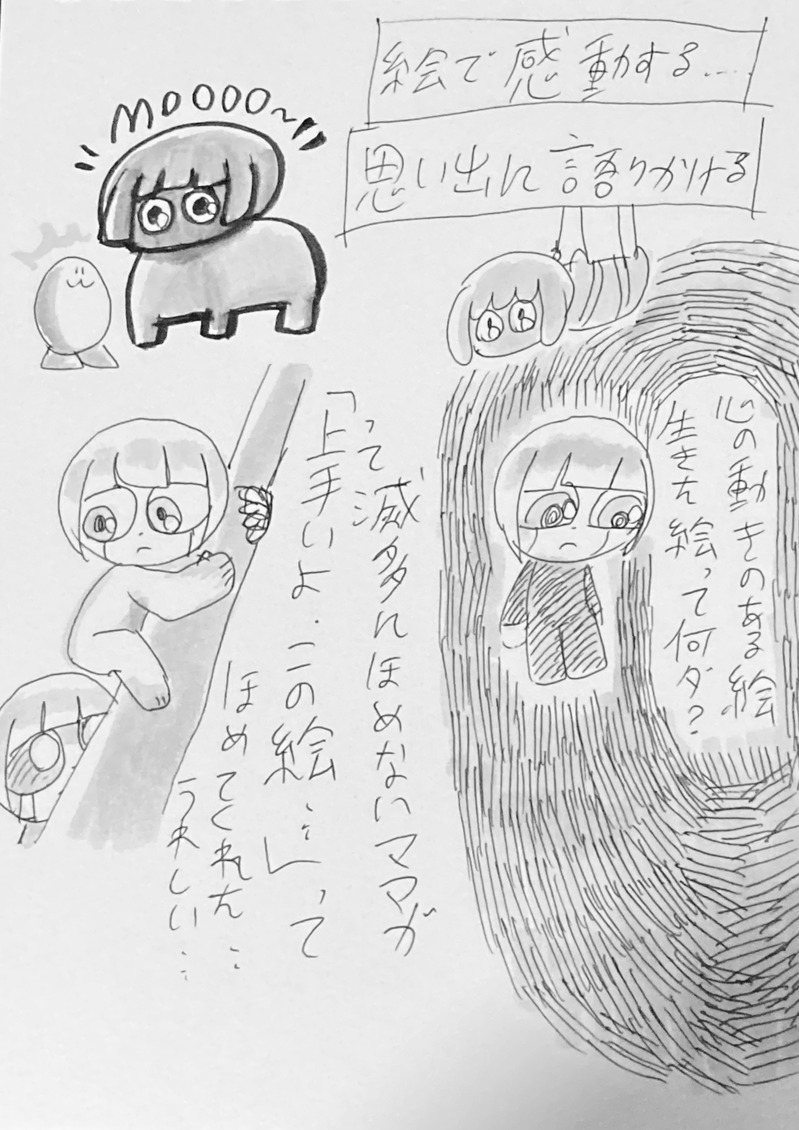 絵で感動する....
思い出に語りかける
MOOOO~
心の動きのある絵
生きた絵って何ダ?
って滅多にほめないママが
「上手いよ.この絵...」って
ほめてくれた...
うれしい...